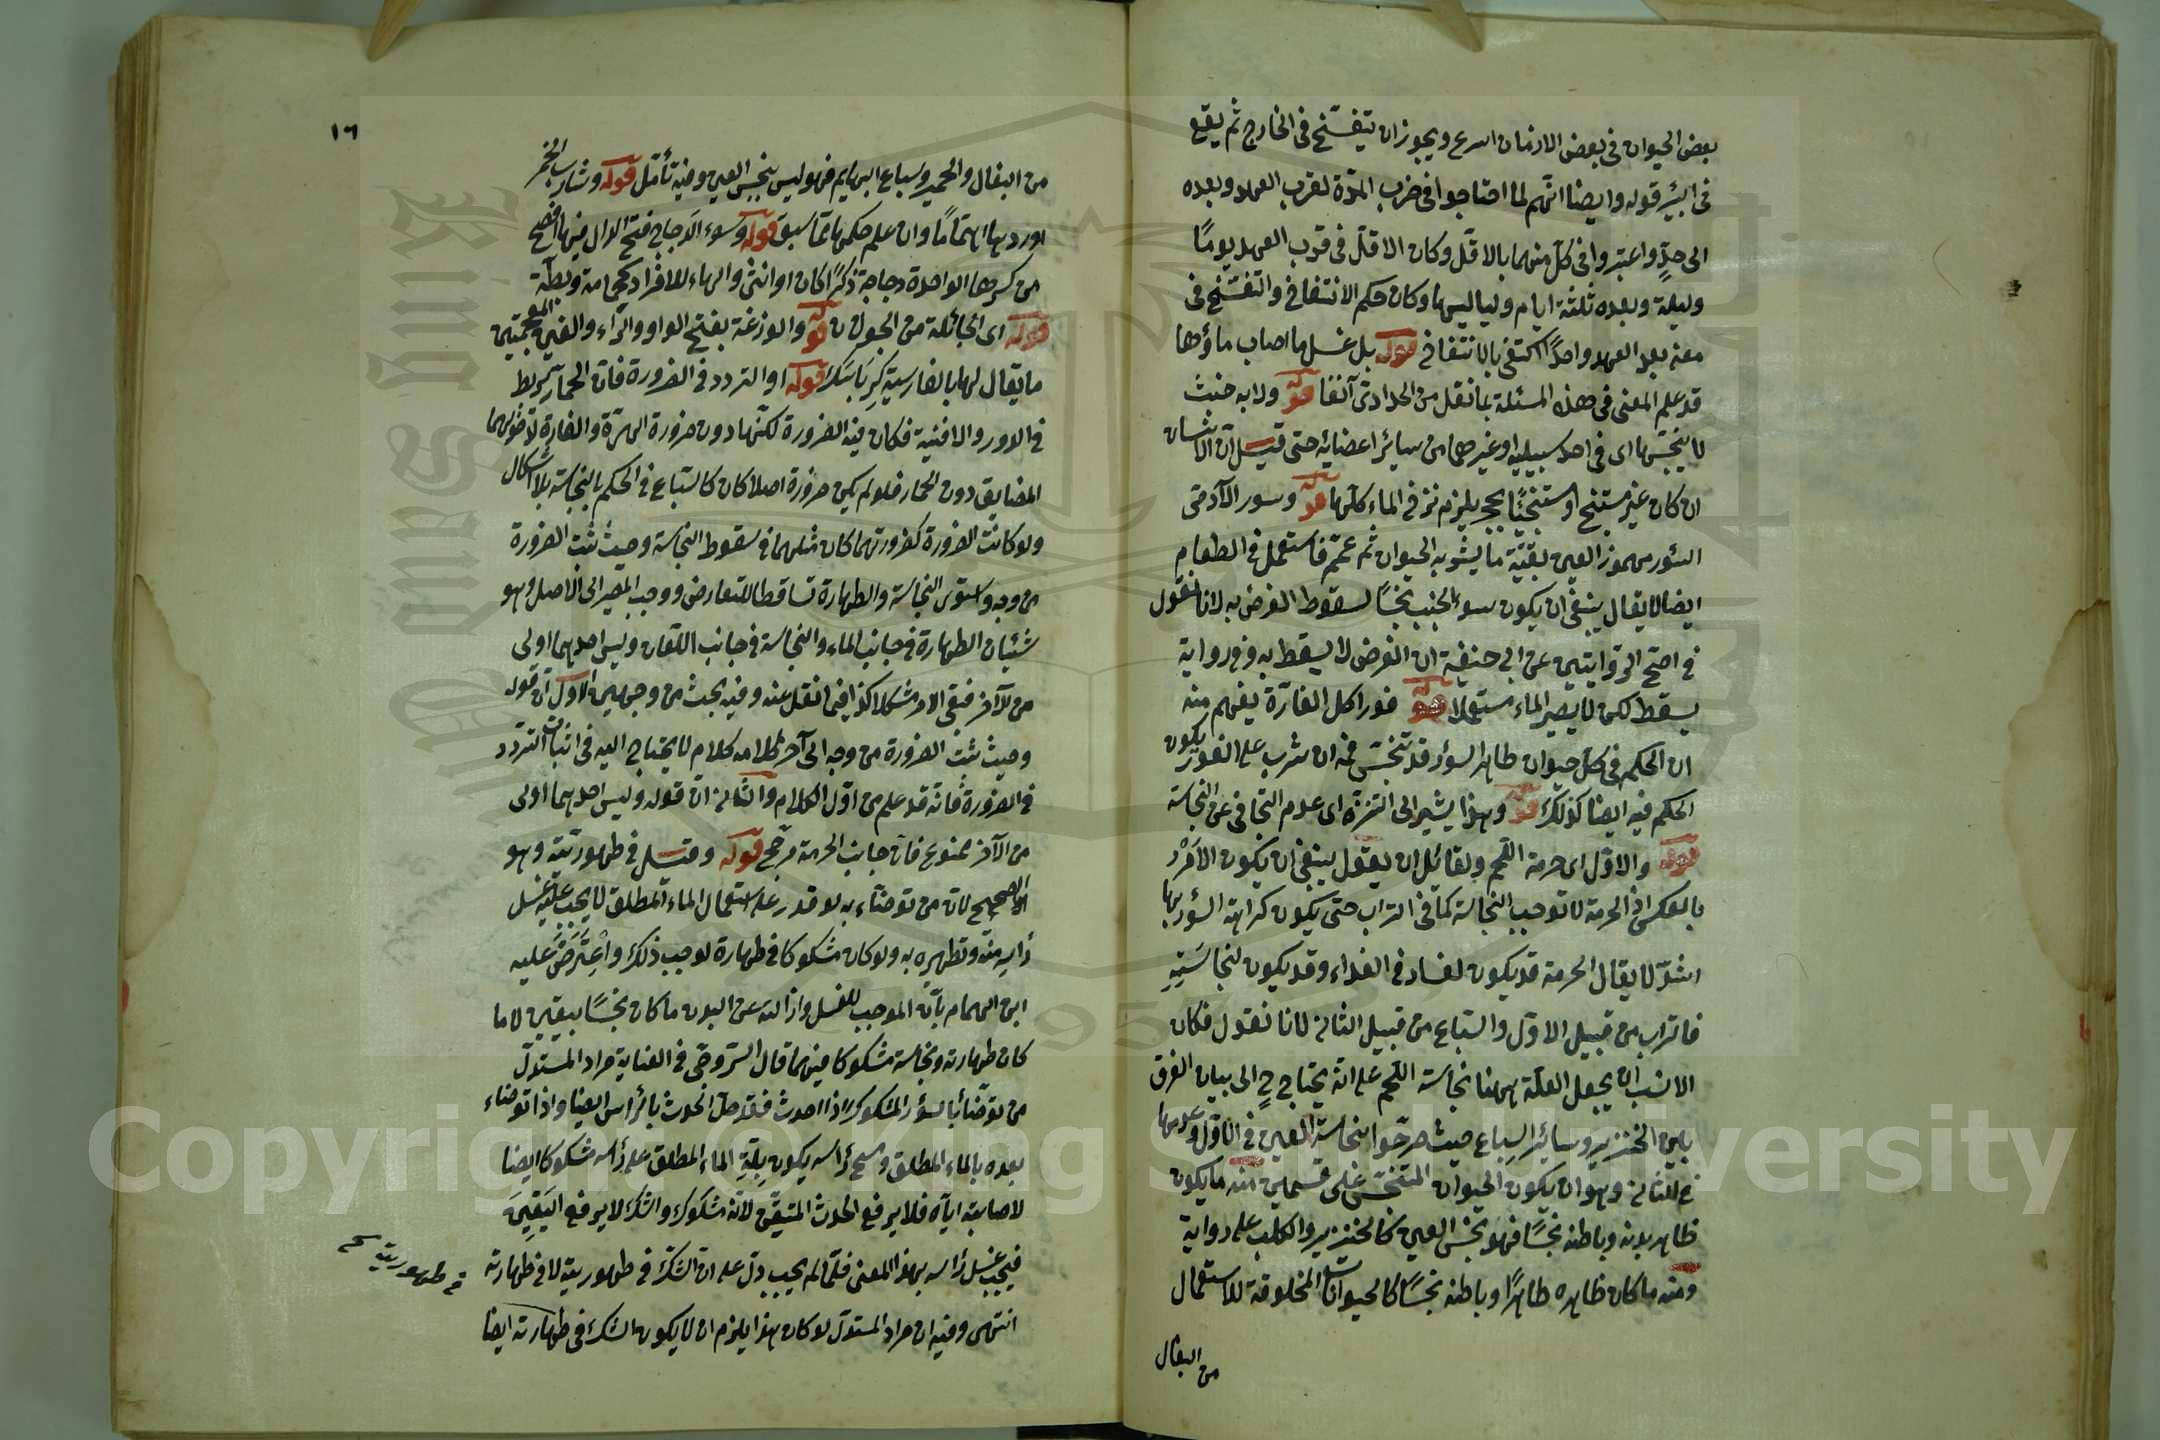 بعض الحيوان في بعض الازمان اسرع ويجوز ان يتفسخ في الخارج ثم يقع
في البئر قوله وايضا انهم لما احتاجوا في ضرب المدة لقرب العهد وبعده
الى حد واعتبروا في كل منهما بالاقل وكان الاقل في قرب العهد يوما
وليلة وبعده ثلثة ايام ولياليها وكان حكم الانتفاخ والتفسخ في
معنى بعد العهد واحدا اكتفى بالانتفاخ قوله بل غسلها اصاب ماؤها
قد علم المعنى في هذه المسئلة بما نقل من الحدادى آنفا قوله ولابه خبث
لا ينجسها اى في احد سبيليه او غيرهما من سائر اعضائه حتى قيل ان الانسان
ان كان غير مستنج او مستنجيا بحجر يلزم نزف الماء كلها قوله وسور الآدمى
السؤر مهموز العين بقية ما يشربه الحيوان ثم عمم فاستعمل في الطعام
ايضا لا يقال ينبغى ان يكون سوء الجنب نجسا لسقوط الفرض به لانا نقول
في اصح الروايتين عن ابى حنيفة ان الفرض لا يسقط به وفي رواية
يسقط لكن لا يصير الماء مستعملا قوله فور اكل الفارة يفهم منه
ان الحكم في كل حيوان طاهر السؤر قد تنجس فمه ان شرب على الفور يكون
الحكم فيه ايضا كذلك قوله وهذا يشير الى التنزه اى عدم التجافى عن النجاسة
قوله والاول اى حرمة اللحم ولقائل ان يقول ينبغى ان يكون الامر
بالعكس اذ الحرمة لا توجب النجاسة كما في التراب حتى يكون كراهة السؤر بها
اشد لا يقال الحرمة قد يكون لفساد في الغذاء وقد يكون لنجاسته
فاتراب من قبيل الاول والسباع من قبيل الثانى لانا نقول فكان
الانسب ان يجعل العلة ههنا نجاسة اللحم على انه يحتاج ح الى بيان الفرق
بين الخنزير وسائر السباع حيث صرحوا بنجاسة العين في الاول وعدمها
في الثانى وهو ان يكون الحيوان المتنجس على قسمين منه ما يكون
ظاهر بدنه وباطنه نجسا فهو نجس العين كالخنزير والكلب على رواية
ومنه ما كان ظاهره طاهرا وباطنه نجسا كالحيوانات المخلوقة للاستعمال
من البغال
١٦
من البغال والحمير وسباع البهايم فهو ليس بنجس العين وفيه تأمل قوله وشارب الخمر
اوردها اهتماما وان علم حكمها مما سبق قوله وسوء الدجاج فتح الدال فيها افصح
من كسرها الواحدة دجاجة ذكرا كان او انثى والهاء للافراد كحمامة وبطة
قوله اى الجائلة من الجولان قوله والوزغة بفتح الواو والزاء والغين المعجمتين
ما يقال لها بالفارسية كرباسك قوله او التردد في الضرورة فان الحمار يربط
في الدور والافنية فكان فيه الضرورة لكنها دون ضرورة الهرة والفارة لدخولهما
المضايق دون الحمار فلو لم يكن ضرورة اصلا كان كالسباع في الحكم بالنجاسة بلا اشكال
ولو كانت الضرورة كضرورتهما كان مثلهما في سقوط النجاسة وحيث ثبت الضرورة
من وجه واستوى النجاسة والطهارة تساقطا للتعارض ووجب المصير الى الاصل وهو
شئيان الطهارة في جانب الماء والنجاسة في جانب اللعاب وليس احدهما اولى
من الآخر فبقى الامر مشكلا كذا فيما نقل عنه وفيه بحث من وجهين الاول ان قوله
وحيث ثبت الضرورة من وجه الى آخر كلامه كلام لا يحتاج اليه في اثبات التردد
في الضرورة فانه قد علم من اول الكلام والثانى ان قوله وليس احدهما اولى
من الآخر ممنوع فان جانب الحرمة مرجح قوله وقيل في طهوريته وهو
الاصح لان من توضأ به لو قدر على استعمال الماء المطلق لا يجب عليه غسل
رأسه منه وتطهره به ولو كان مشكوكا في طهارة لوجب ذلك واعترض عليه
ابن الهمام بان الموجب للغسل وازالته عن البدن ما كان نجسا بيقين لا ما
كان طهارته ونجاسته مشكوكا فيهما قال السروجى في الغناية مراد المستدل
من توضأ بالسؤر المشكوك اذا احدث فقد حل الحدث بالرأس ايضا واذا توضاء
بعده بالماء المطلق ومسح رأسه يكون بلة الماء المطلق على رأسه مشكوكا ايضا
لاصابته اياه فلا يرفع الحدث المتيقن لانه مشكوك والشك لا يرفع اليقين
فيجب غسل رأسه بهذا المعنى فلما لم يجب دل على ان الشك في طهوريته لا في طهارته
انتهى وفيه ان مراد المستدل لو كان بهذا يلزم ان لا يكون الشك في طهارته ايضا
في طهوريته صح
Copyright © King Saud University
King Saud University
1957